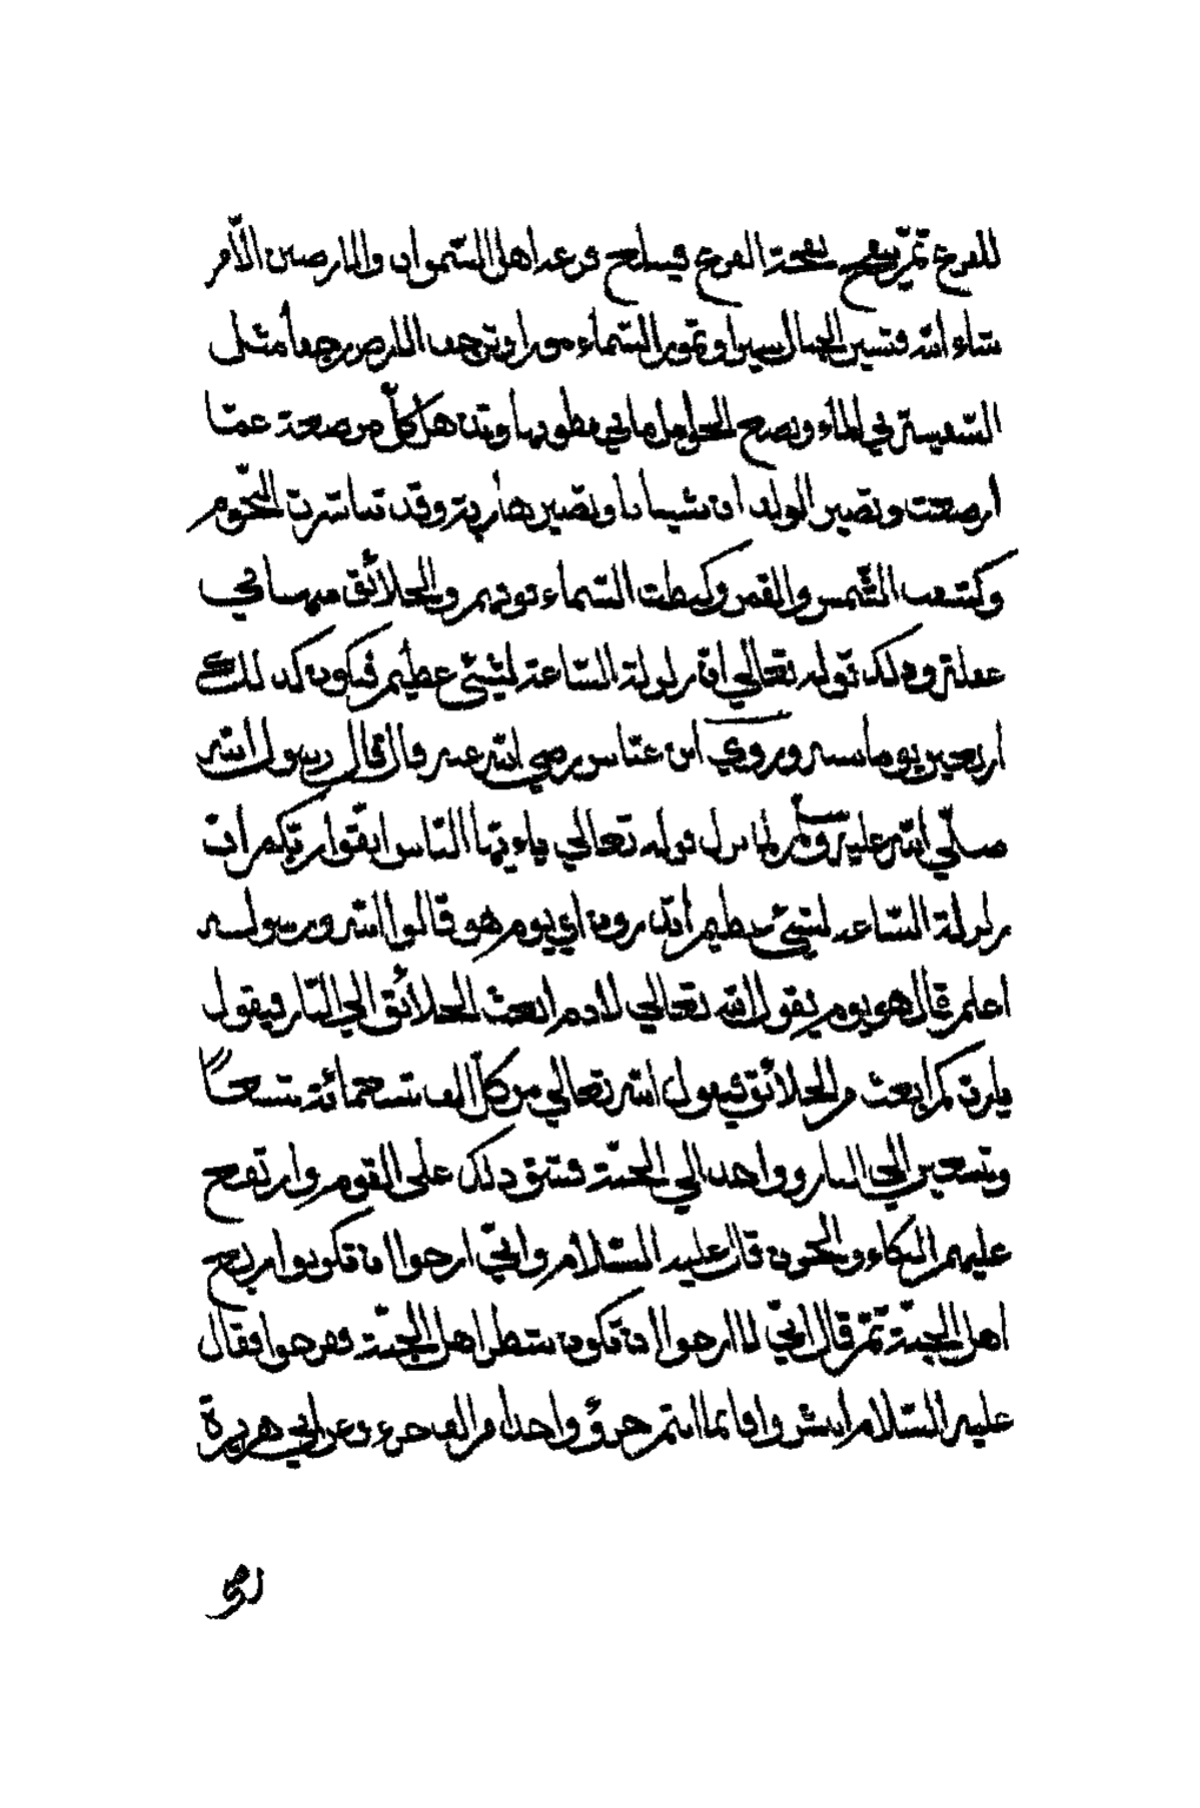 للفرع ثمّ ينفخ نفخة الفرع فيبلغ فرعه اهل السّموات والارضين الاّ من
شاء الله فتسير الجبال سيرا وتمور السّماء مورا وترجف الارض رجفا مثل
السّفينة في الماء وتضع الحوامل ما في بطونها وتذهل كلّ مرضعة عمّا
ارضعت وتصير الولدان شيبانا وتصير هاربة وقد تناثرت النّجوم
وكسفت الشّمس والقمر وكشطت السّماء فوقهم والخلائق منها في
غفلة وذلك قوله تعالي ان زلزلة السّاعة لشيئ عظيم فيكون كذلك
اربعين يوما سنة وروي ابن عبّاس رضي الله عنه قال قال رسول الله
صلّي الله عليه وسلم لما نزل قوله تعالي ياءيّها النّاس اتّقوا ربّكم انّ
زلزلة السّاعة لشيئ عظيم اتدرون اي يوم هو قالوا الله ورسوله
اعلم قال هو يوم يقول الله تعالي لادم ابعث الخلائق الي النّار فيقول
يارب كم ابعث من الخلائق فيقول الله تعالي من كلّ الف تسعمائة تسعا
وتسعين الي النار وواحدا الي الجنّة فشق ذلك على القوم وارتفع
عليهم البكاء والحزن قال عليه السّلام وانّي ارجوا ان تكونوا ربع
اهل الجنّة ثمّ قال انّي لا ارجوا ان تكون شطر اهل الجنّة ففرحوا فقال
عليه السّلام ابشروا فانما انتم جزؤ واحد من الف جزء وعن ابي هريرة
رضي